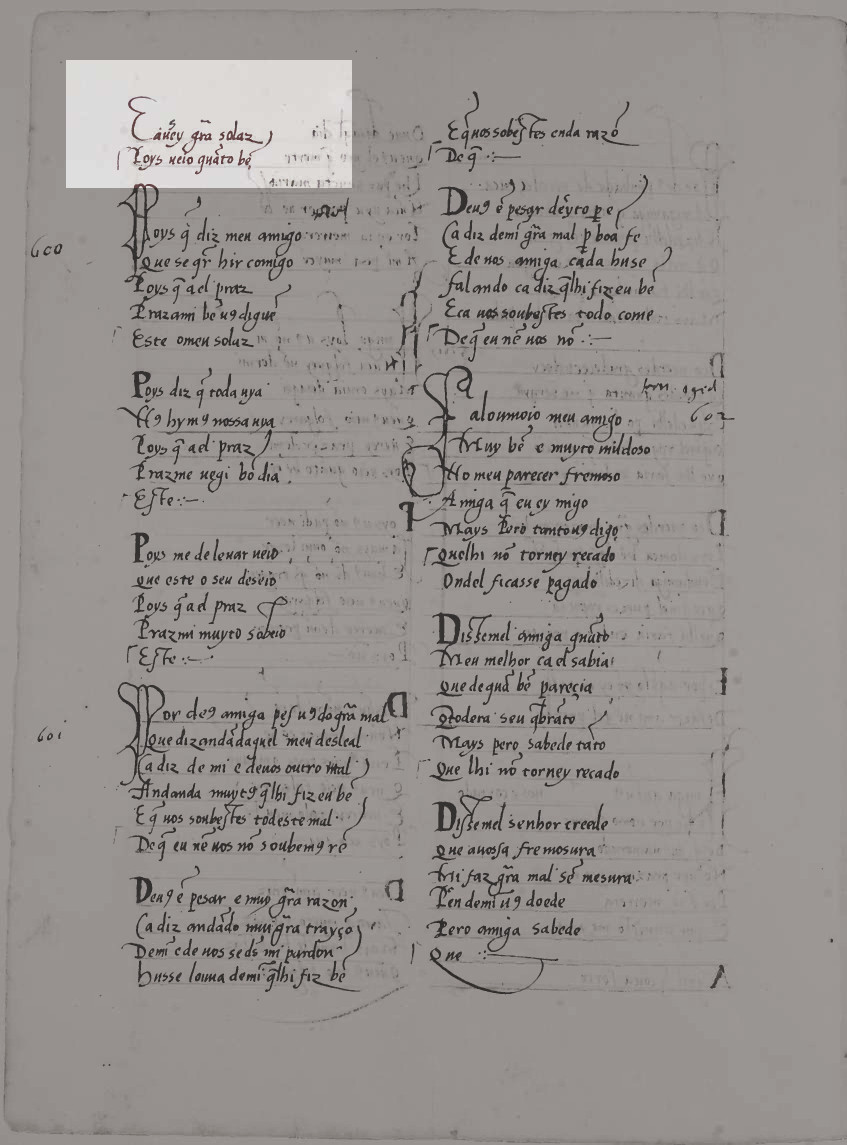 E auey grã solaz
Poys ueio quãto bẽ
600
Poys q̃ diz meu amigo
Que se qr̃ hir comigo
Poys q̃ a el praz
Praz a mi bẽ uꝯ digue
Este o meu solaz
Poys diz q̃ toda uya
Nꝯ hymꝯ nossa uya
Poys q̃ a el praz
Praz me uegi bõ dia
Este
Poys me de leuar ueio
Que este o seu deseio
Poys q̃ a el praz
Praz mi muyto sobeio
Este
601
Por deꝯ amiga pes uꝯ do grã mal
Que diz andãdaquel meu desleal
Ca diz de mi e de uos outro tal
Andanda muytꝯ q̃lhi fiz eu bẽ
E q̃ uos soubestes todeste mal
De q̃ eu nẽ uos nõ soubemꝯ rẽ
Deuꝯ ẽ pesar e muy grã razon
Ca diz andãdo mui grã trayçõ
De mi e de uos se dꝰ mi pardon
Husse louua de mi q̃lhi fiz bẽ
E q̃ uos sobestes enda razõ
De q̃
Deuꝯ ẽ pesar deyto per e
Ca diz de mi grã mal per boa fe
E de uos amiga cada huse
Falando ca diz q̃lhi fiz eu bẽ
E ca uos soubestes todo come
De q̃ eu nẽ uos nõ
602
Falou mo io meu amigo
Muy bẽ e muyto mildoso
No meu parecer fremoso
Amiga q̃ eu ey migo
Mays Pero tanto uꝯ digo
Quelhi nõ torney recado
Ondel ficasse pagado
Dissemel amiga quãto
Meu melhor ca el sabia
Que de quã bẽ parecia
Q̃ todera seu q̃brãto
Mays pero sabede tãto
Que lhi nõ torney recado
Dissemel senhor creede
Que a uossa fremosura
Mi faz grã mal sẽ mesura
Pẽn de mi uꝯ doede
Pero amiga sabede
Que